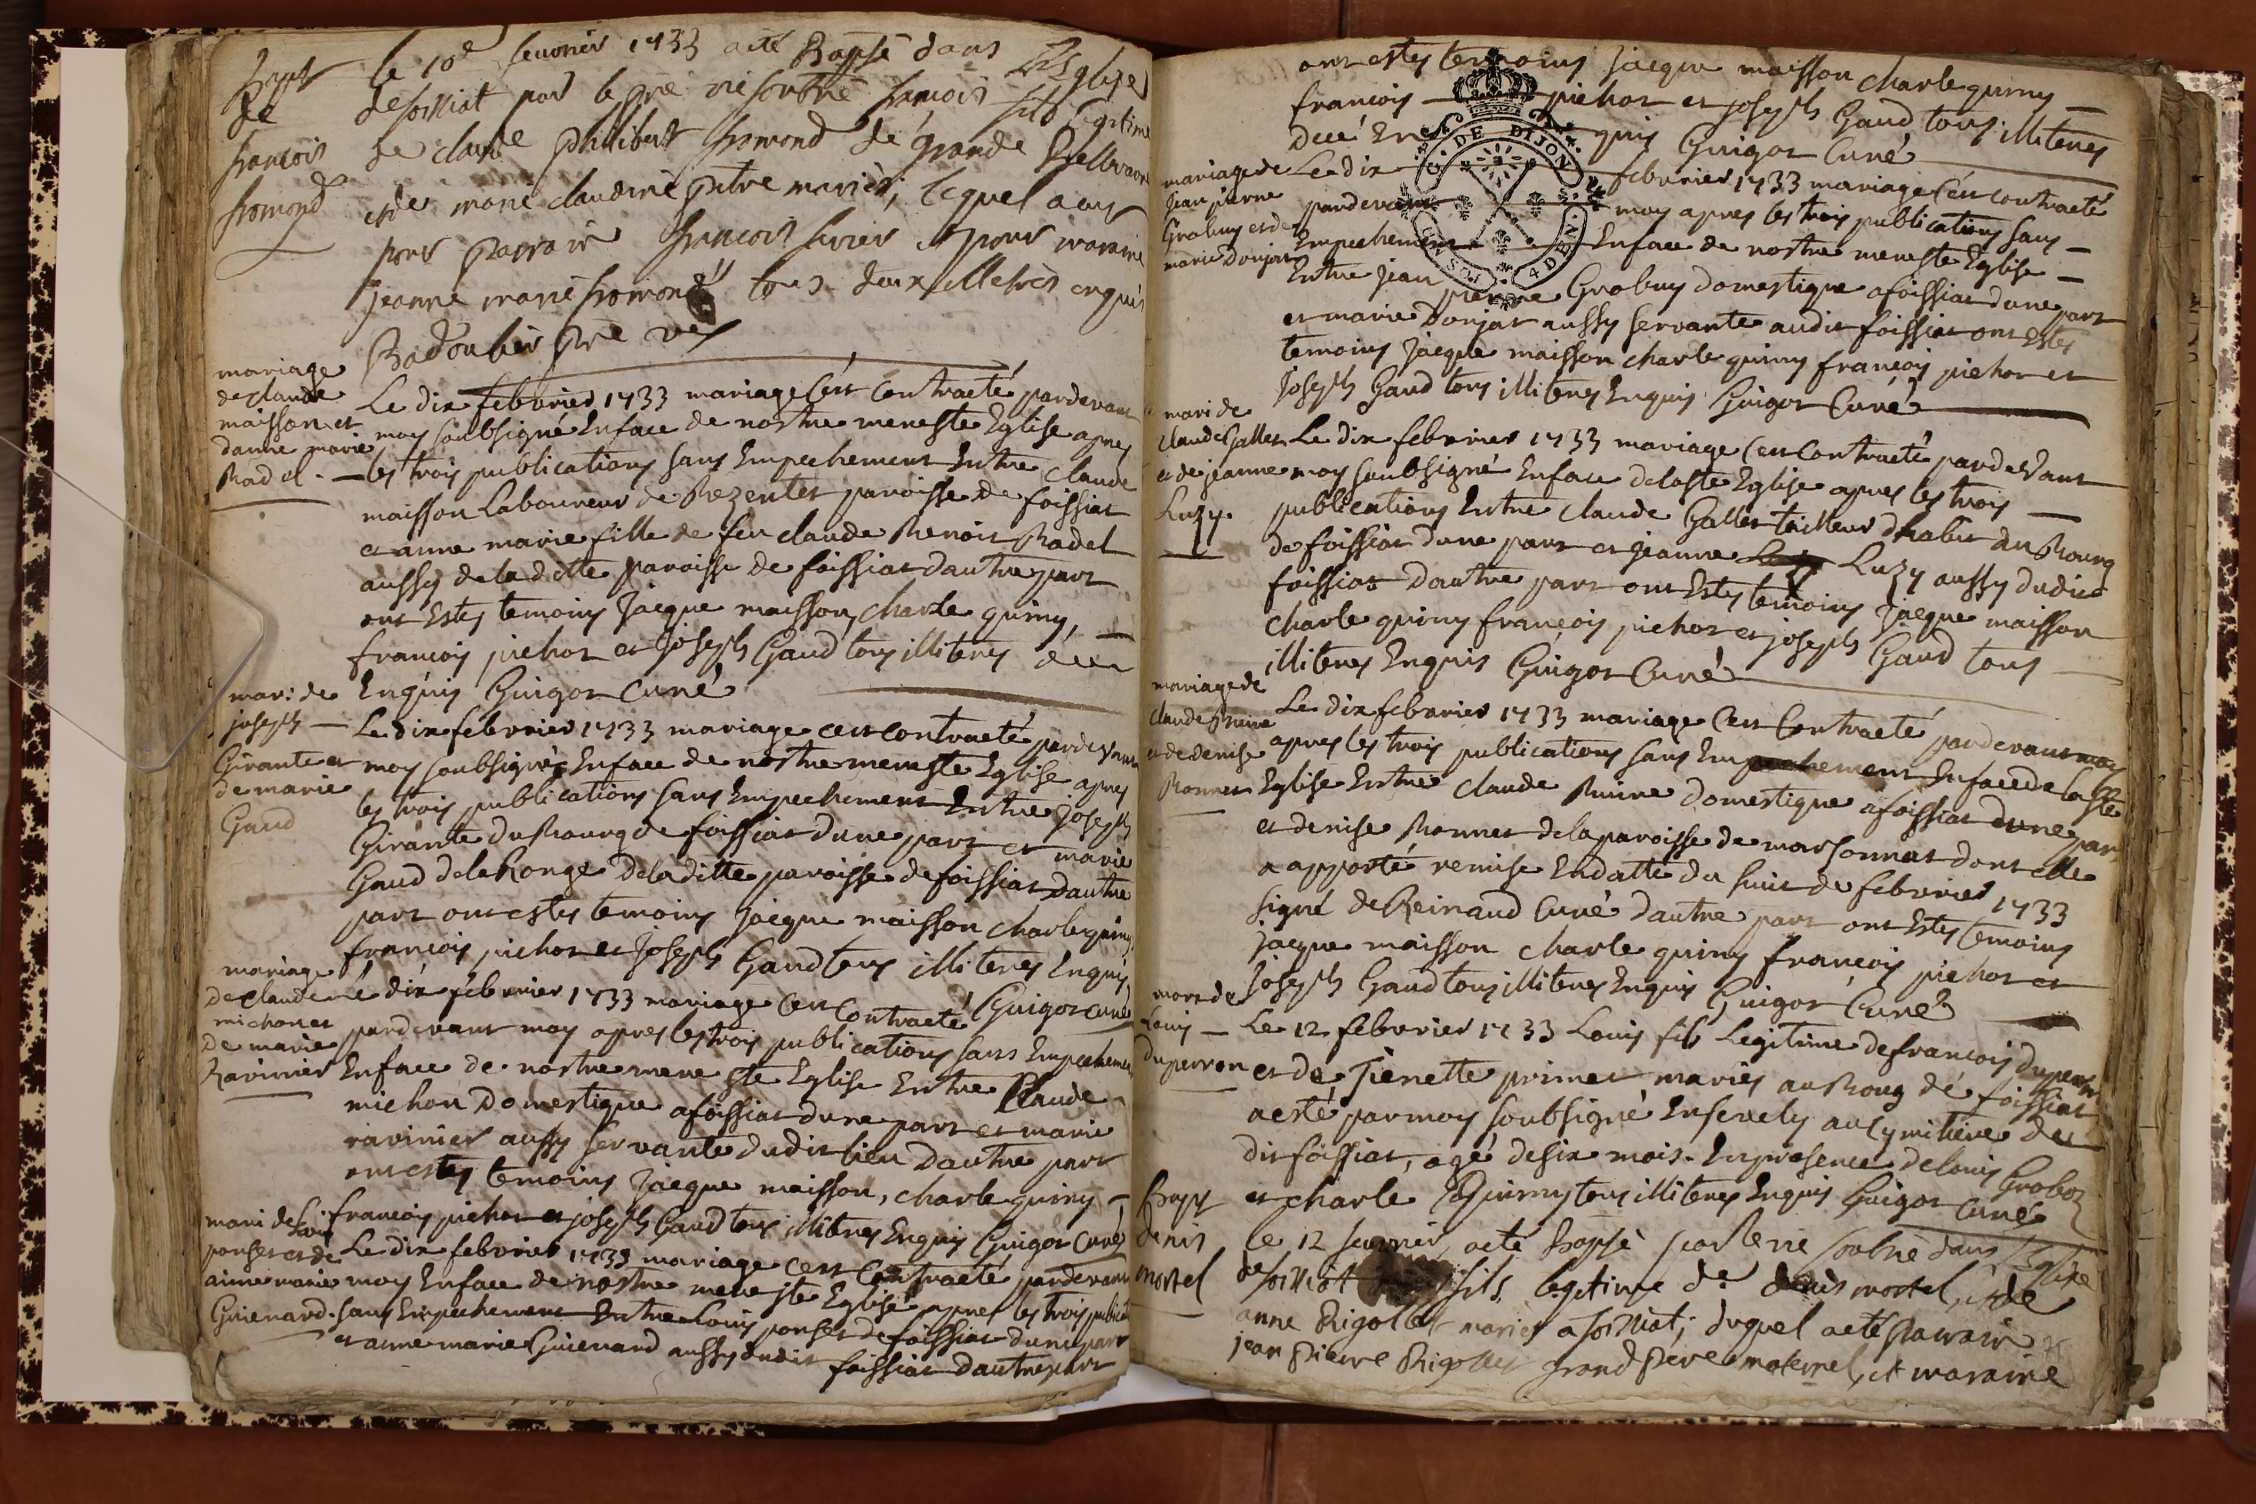 Bapt
de
francois
fromond
le 10e feuvrier 1733 acté Bapsé dans L'Esglise
de foissiat par le prè vre soubne francois fils legitime
de claude philibert fromond de grande
et de marie claudine petre mariès, lequel a eut
pour parrain francois et pour maraine
jeanne marie fromond tous deux illetrés enquis
Badoubier pre
mariage
de claude
maisson et
danne marie
Radel
Le dix febvrier 1733 mariage C'est Contracté pardevant
moy soubsigné Enface de nostre mere ste Eglise apres
les trois publications sans Empechement Entre Claude
maisson Laboureur de Rezentet paroisse de foissiat
et anne marie fille de feu claude Benoit Radel
aussy de la ditte paroisse de foissiat dautre part
ont Estes temoins Jacque maisson, charle quiny,
francois pichot et joseph Gaud tous illiteres
Enquis Guigot Curé
mari: de
joseph
Girante et
de marie
Gaud
Le dix febvrier 1733 mariage cest contracté pardevant
moy soubsigné Enface de nostre mere ste Eglise apres
les trois publications sans Empechement Entre Joseph
Girante du Bourg de foissiat dune part et marie
Gaud de la Ronge de la ditte paroisse de foissiat Dautre
part ont estes temoins Jacque maisson charle quiny
francois pichot et Joseph Gaud tous illiteres Enquis
Guigot curé
mariage
De claude
michon et
De marie
Ravinier
Le dix febvrier 1733 mariage C'est Contracté
pardevant moy apres les trois publications sans Empechement
Enface de nostre mere ste Eglise Entre Claude
michon Domestique a foissiat dune part et marie
ravinier aussy servante dudit lieu Dautre part
ont estes temoins Jacque maisson, charle quiny
francois pichot et joseph Gaud tous illiteres Enquis Guigot Curé
mari de Louis
ponset et de
anne marie
Guienard
Le dix febvrier 1733 mariage c'est Contracté pardevant
moy Enface de nostre mere ste Eglise apres les trois publicat
sans Empechement Entre Louis ponset de foissiat dune part
et anne marie Guienard aussy dudit foissiat Dautre part
ont estes temoins Jacque maisson charle quiny
francois pichot et joseph Gaud tous illiteres
Enquis Guigot Curé
G. DE DIJON
4 DEN.
mariage de
Jean pierre
Grobuy et de
marie Donjat
Le dix febvrier 1733 mariage C'est contracté
pardevant moy apres les trois publications sans
Empechement Enface de nostre mere ste Eglise
Entre Jean pierre Grobuy Domestique a foissiat dune part
et marie Donjat aussy servante audit foissiat ont Estes
temoins Jacque maisson charle quiny francois pichot et
Joseph Gaud tous illiteres Enquis Guigot Curé
mari de
claude Gallet
et de jeanne
Luzy
Le dix febvrier 1733 mariage C'est Contracté pardevant
moy soubsigné Enface de la ste Eglise apres les trois
publications Entre claude Gallet tailleur dhabit du Bourg
de foissiat dune part et jeanne Luzy aussy dudit
foissiat Dautre part ont Estes temoins Jacque maisson
charle quiny francois pichot et joseph Gaud tous
illiteres Enquis Guigot Curé
mariage de
claude
et de denise
Bonnet
Le dix febvrier 1733 mariage C'est Contracté pardevant moy
apres les trois publications sans Empechement Enface de la ste
Eglise Entre claude Domestique a foissiat dune part
et denise Bonnet de la paroisse de marsonnat dont elle
a apporté remise Endatte du huit de febvrier 1733
signé de Reinaud Curé dautre part ont Estes temoins
jacque maisson charle quiny francois pichot et
Joseph Gaud tous illiteres Enquis Guigot Curé
mort de
Louis
Duperron
Le 12 febvrier 1733 Louis fils Legitime de francois Duperron
et de Jienette primet mariés au Bourg de foissiat
a esté par moy soubsigné Ensevely au Cymitiere du
dit foissiat, agé de six mois. En presence de louis Grobos
et charle Quiny tous illiteres Enquis Guigot Curé
Bapt
denis
mortel
le 12 feuvrier, acté Bapsé par le vre soubne dans L'Eglise
de foissiat fils legitime de denis mortel, et de
anne Rigollet mariés a foissiat; duquel acté parrain
jean Pierre Rigollet grand Pere maternel, et maraine